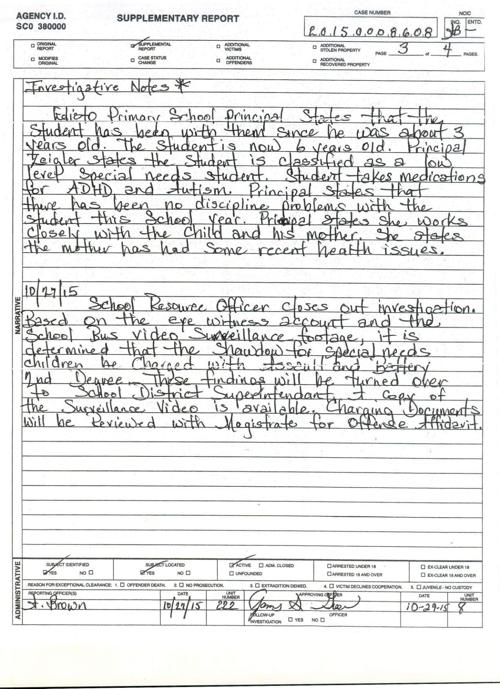 AGENCY I.D.
SC0 380000
SUPPLEMENTARY REPORT
CASE NUMBER
2015 0008608
NCIC
INQ. ENTD.
ORIGINAL REPORT
SUPPLEMENTAL REPORT
ADDITIONAL VICTIMS
ADDITIONAL STOLEN PROPERTY
PAGE 3 of 4 PAGES.
MODIFIES ORIGINAL
CASE STATUS CHANGE
ADDITIONAL OFFENDERS
ADDITIONAL RECOVERED PROPERTY
Investigative Notes *
Edisto Primary School Principal States that the
Student has been with them since he was about 3
years old. The Student is now 6 years old. Principal
Zeigler states the Student is classified as a low
level special needs student. Student takes medications
for ADHD and Autism. Principal States that
there has been no discipline problems with the
student this School year. Principal states she works
closely with the child and his mother. She states
the mother has had some recent health issues.
10/27/15
School Resource Officer closes out investigation.
Based on the eye witness account and the
School Bus video Surveillance footage, it is
determined that the Shawdow for special needs
children be Charged with Assault and Battery
2nd Degree. These findings will be turned over
to School District Superintendant. A Copy of
the Surveillance Video is available. Charging Documents
will be Reviewed with Magistrate for Offense Affidavit.
NARRATIVE
ADMINISTRATIVE
SUBJECT IDENTIFIED
YES NO
SUBJECT LOCATED
YES NO
ACTIVE ADM. CLOSED
UNFOUNDED
ARRESTED UNDER 18
ARRESTED 18 AND OVER
EX-CLEAR UNDER 18
EX-CLEAR 18 AND OVER
REASON FOR EXCEPTIONAL CLEARANCE: 1. OFFENDER DEATH. 2. NO PROSECUTION. 3. EXTRADITION DENIED. 4. VICTIM DECLINES COOPERATION. 5. JUVENILE - NO CUSTODY
REPORTING OFFICER(S) DATE UNIT NUMBER APPROVING OFFICER DATE UNIT NUMBER
A. Brown 10/27/15 222 10-29-15 8
FOLLOW-UP INVESTIGATION YES NO OFFICER